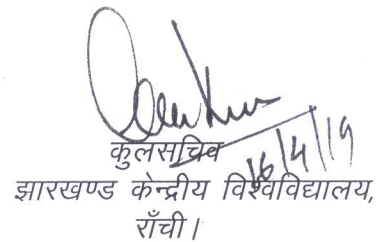 कुलसचिव
16/4/19
झारखण्ड केन्द्रीय विश्वविद्यालय,
राँची।